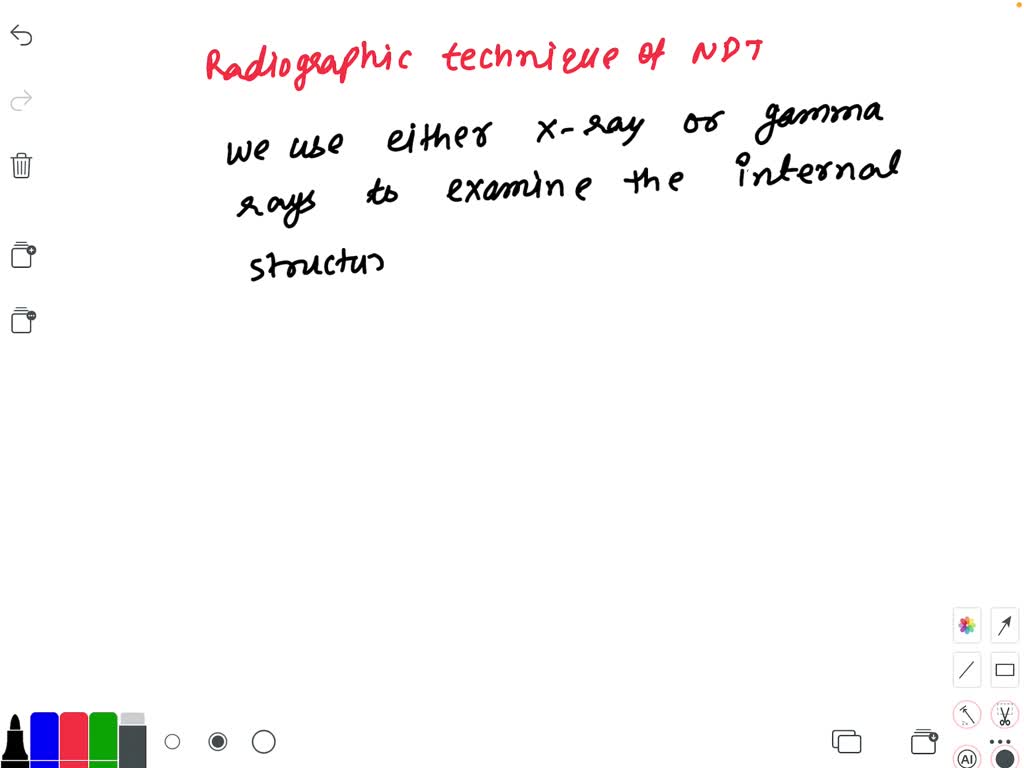 Radiographic technique of NDT
we use either x-ray or gamma
rays to examine the internal
structus
AI